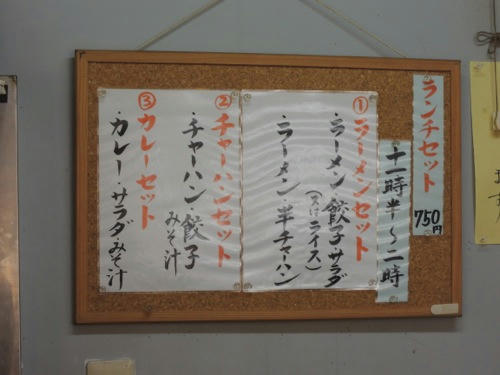 ランチセット
750円
十一時半〜二時
①ラーメンセット
・ラーメン・餃子・サラダ
(又はライス)
・ラーメン・半チャーハン
②チャーハンセット
・チャーハン・餃子
みそ汁
③カレーセット
・カレー・サラダ・みそ汁